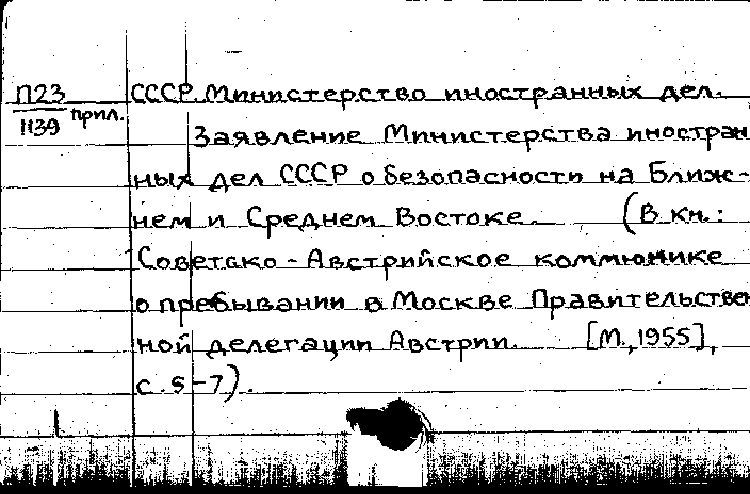 П23 СССР. Министерство иностранных дел.
1139 прил.
Заявление Министерства иностран
ных дел СССР о безопасности на Ближ-
нем и Среднем Востоке. (В кн.:
Советско-Австрийское коммюнике
о пребывании в Москве Правительствен
ной делегации Австрии. [М., 1955],
с. 5-7).